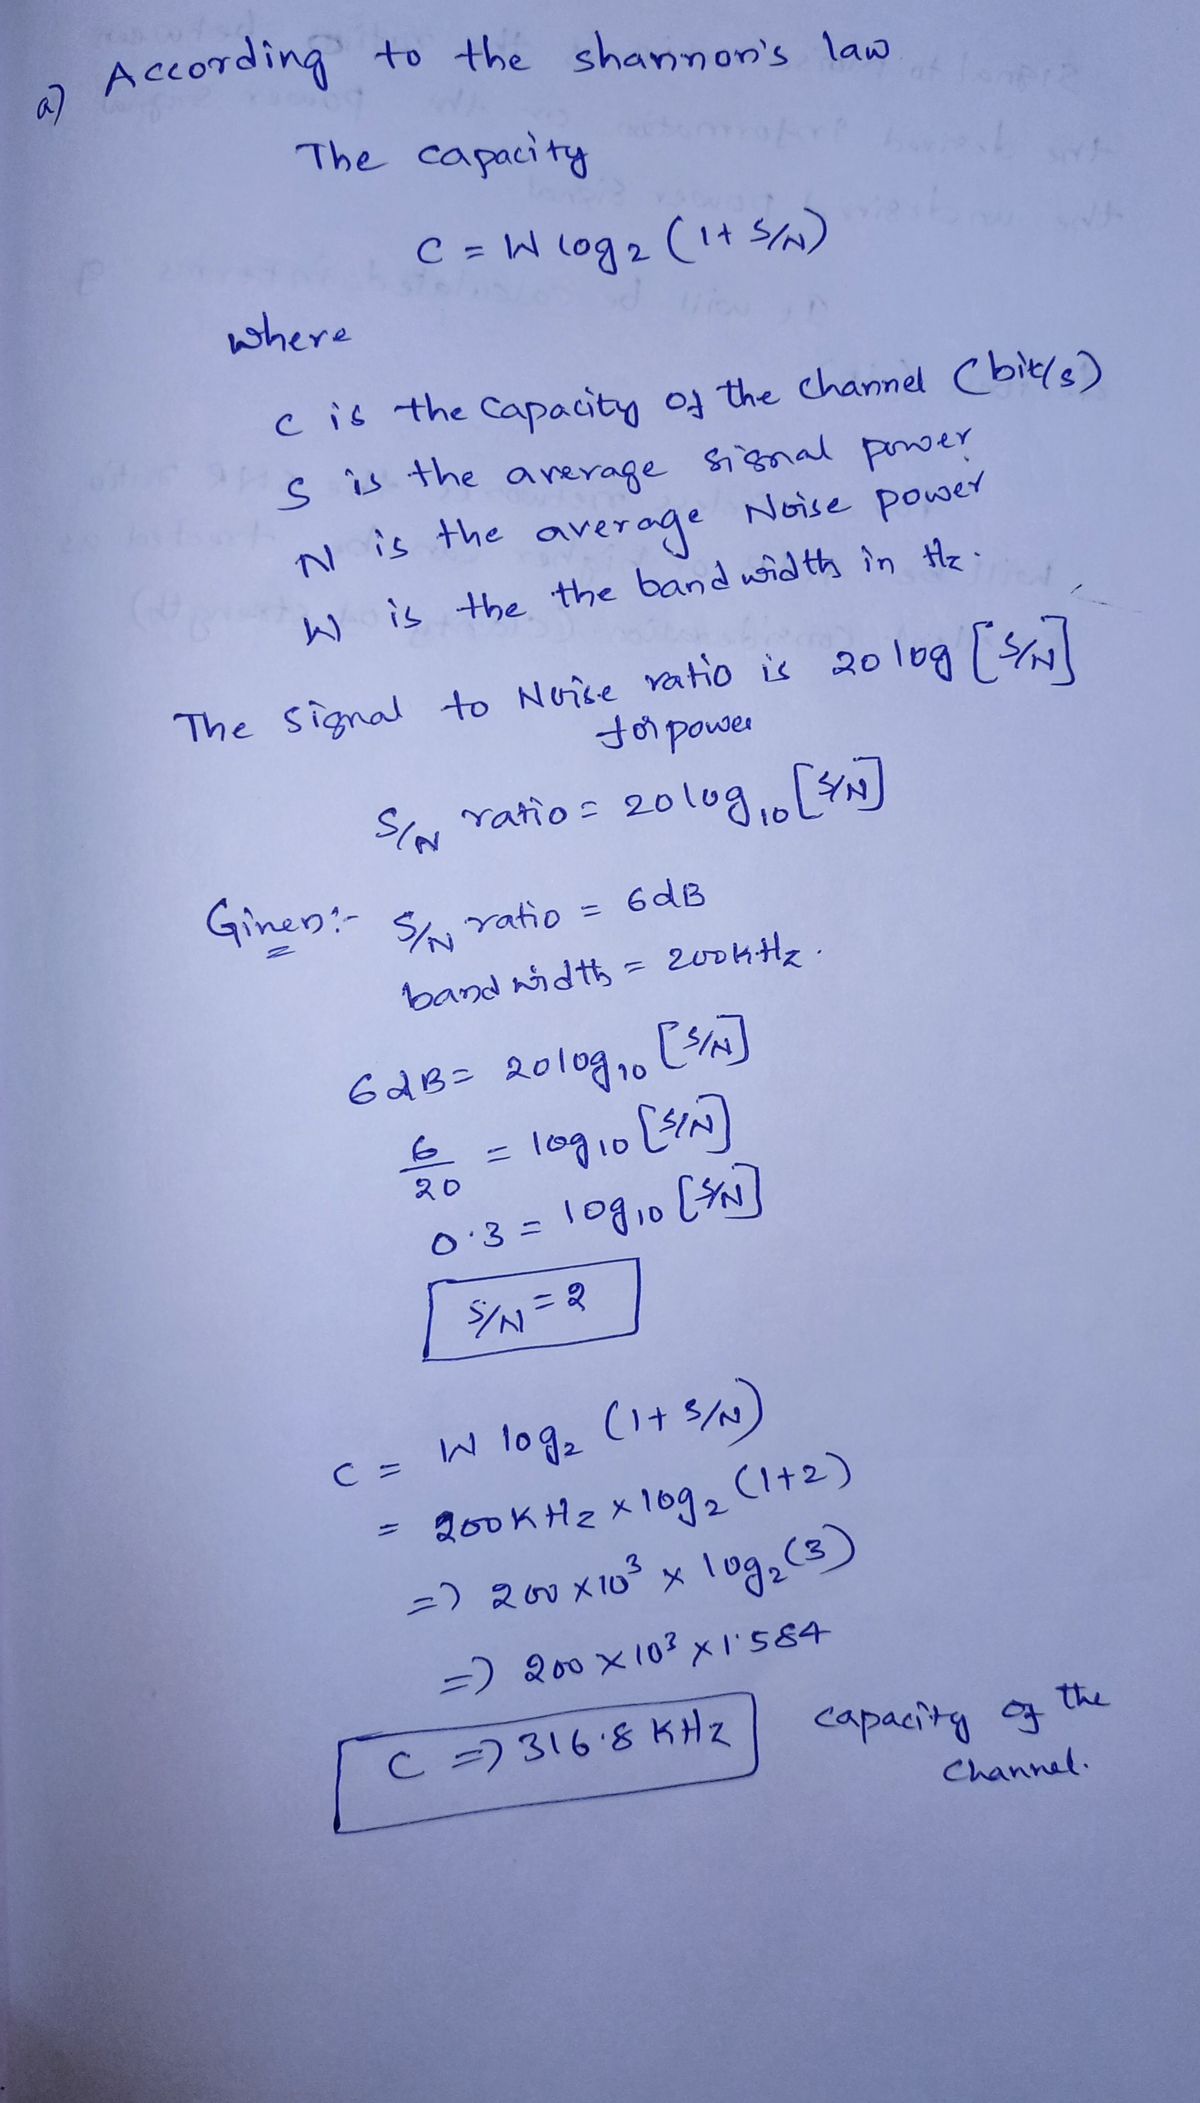 a) According to the shannon's law
The capacity
C = W log₂ (1 + S/N)
where
C is the capacity of the channel (bit/s)
S is the average signal power
N is the average Noise power
W is the the bandwidth in Hz.
The Signal to Noise ratio is 20 log [S/N]
for power
S/N ratio = 20 log₁₀ [S/N]
Given:- S/N ratio = 6dB
bandwidth = 200KHz.
6dB = 20log₁₀ [S/N]
6/20 = log₁₀ [S/N]
0.3 = log₁₀ [S/N]
S/N = 2
C = W log₂ (1 + S/N)
= 200KHz × log₂ (1+2)
=) 200 × 10³ × log₂(3)
=) 200 × 10³ × 1.584
C =) 316.8 KHz capacity of the
channel.